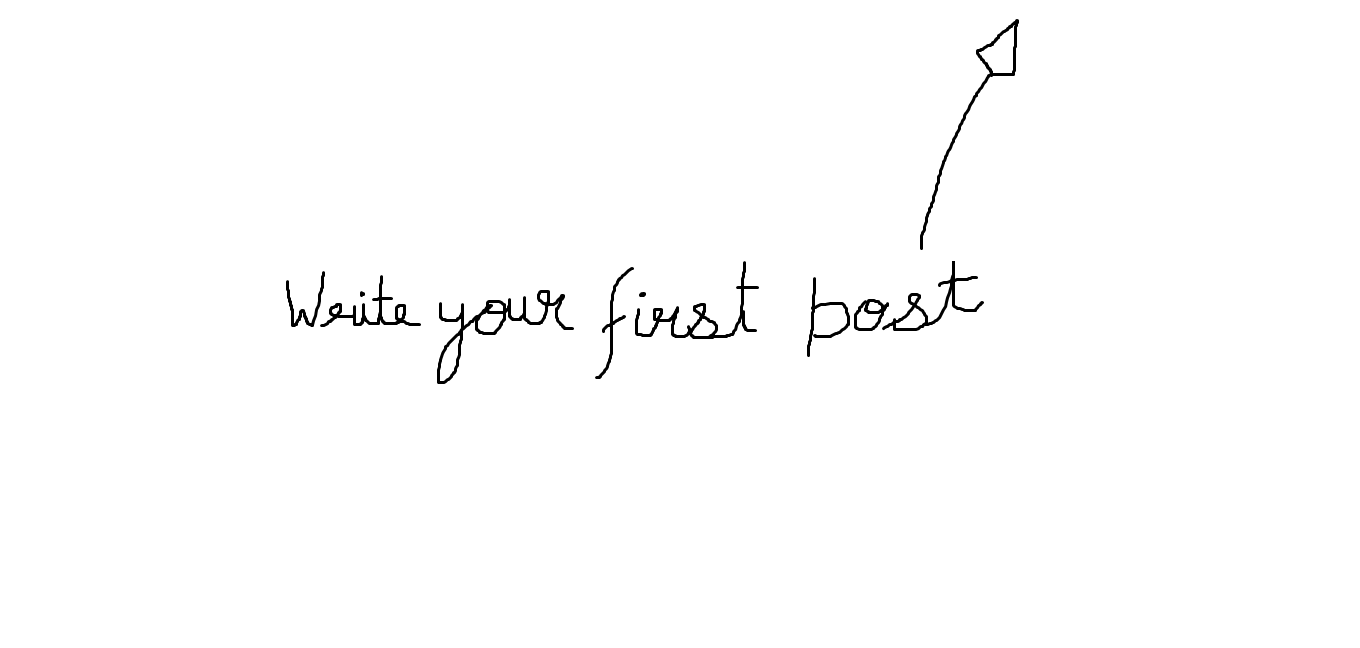 Write your first post